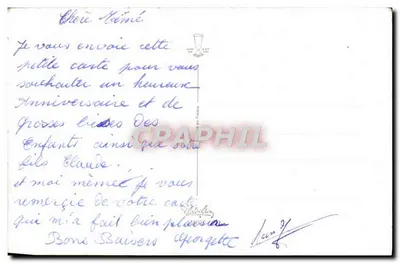 Chère Mémé
Je vous envoie cette
petite carte pour vous
souhaiter un heureux
Anniversaire et de
grosses bises des
Enfants ainsi que votre
fils Claude.
et moi même Je vous
remercie de votre carte
qui m'a fait bien plaisir
Bons Baisers Georgette
CPRETRO.COM